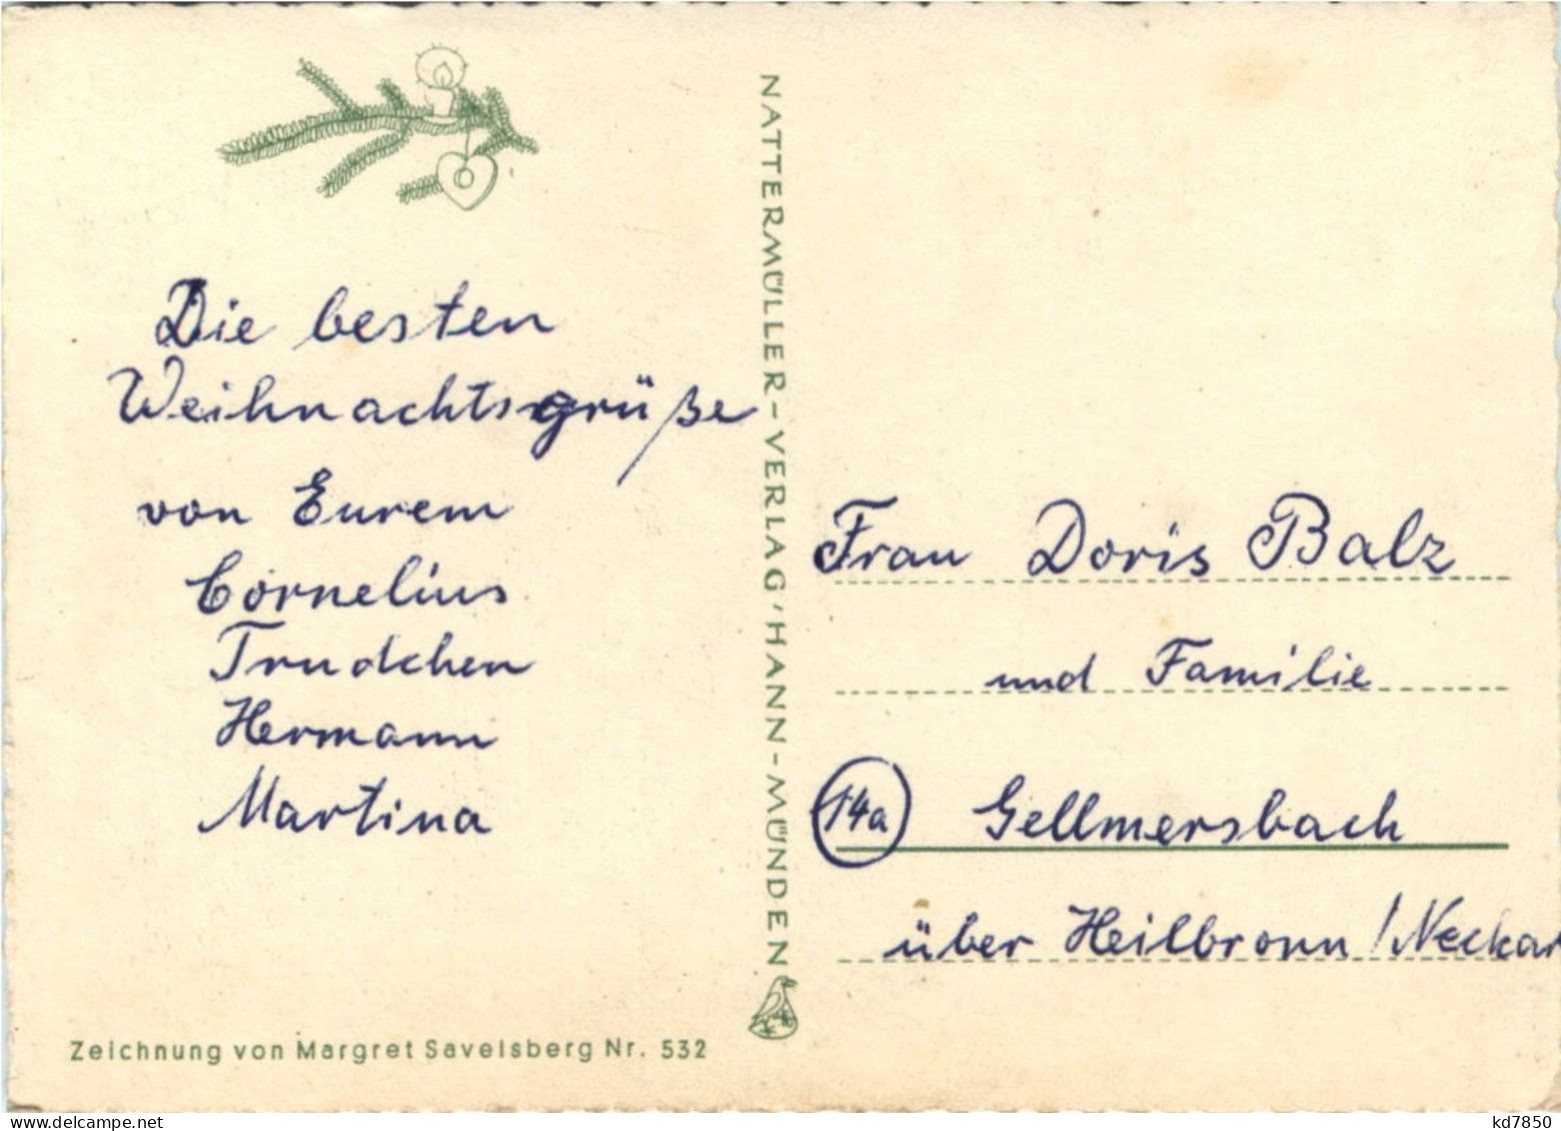 Die besten
Weihnachtsgrüße
von Eurem
Cornelius
Trudchen
Hermann
Martina
Zeichnung von Margret Savelsberg Nr. 532
NATTERMÜLLER-VERLAG'HANN-MÜNDEN
Frau Doris Balz
und Familie
14a Gellmersbach
über Heilbronn /Neckar
www.delcampe.net
kd7850